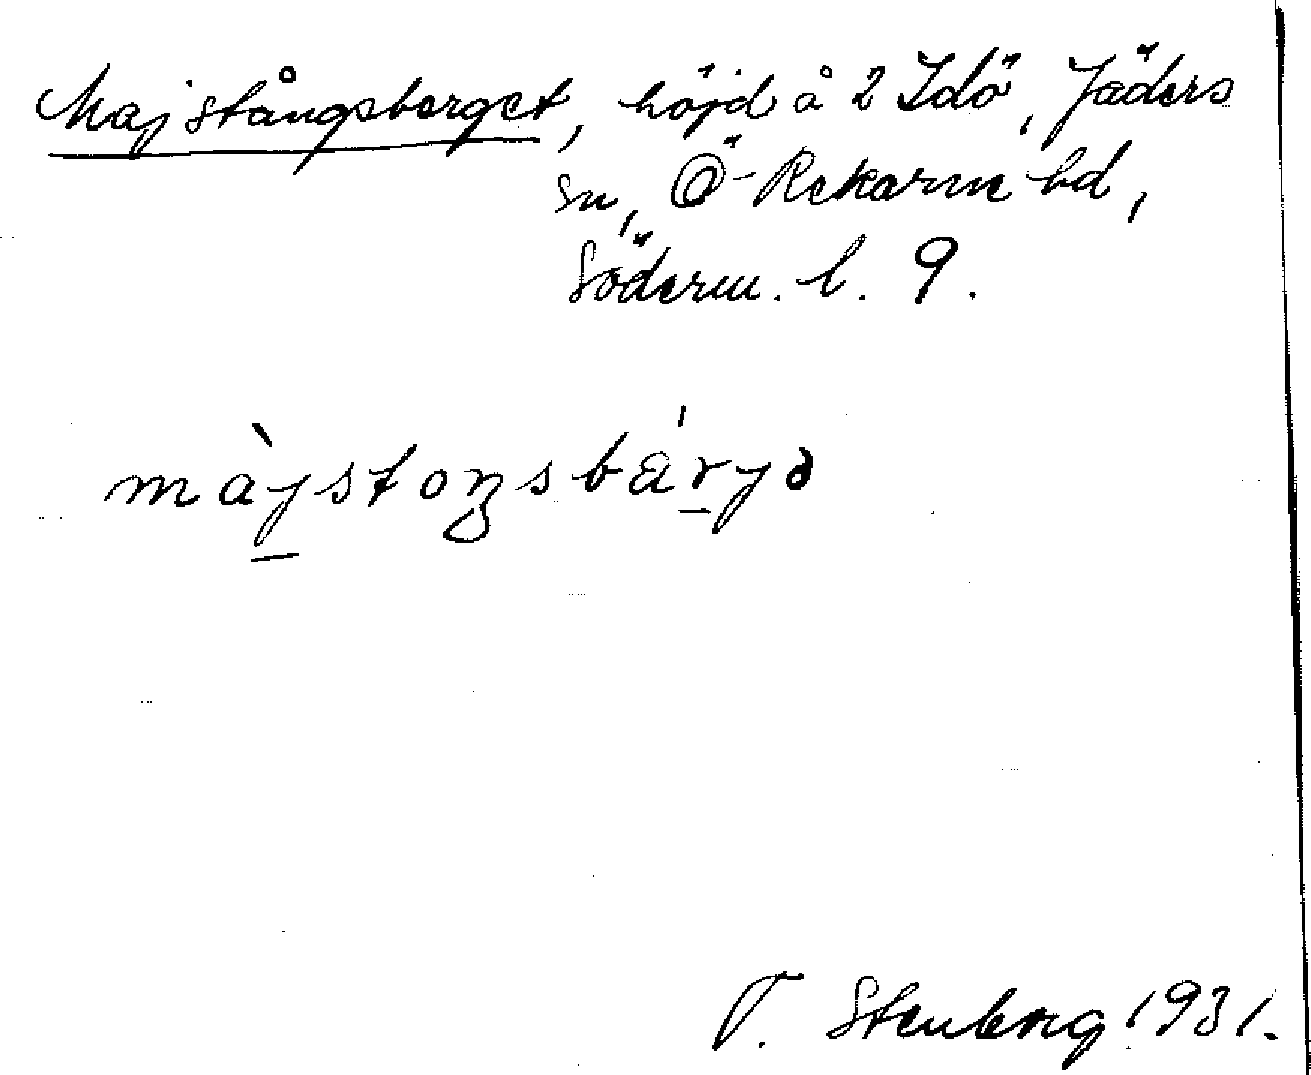 Majstångsberget, höjd å 2 Idö, Jäders
sn, Ö-Rekarne hd,
Söderm. l. 9.
màystoŋsbá̈ryə
T. Stenberg 1931.